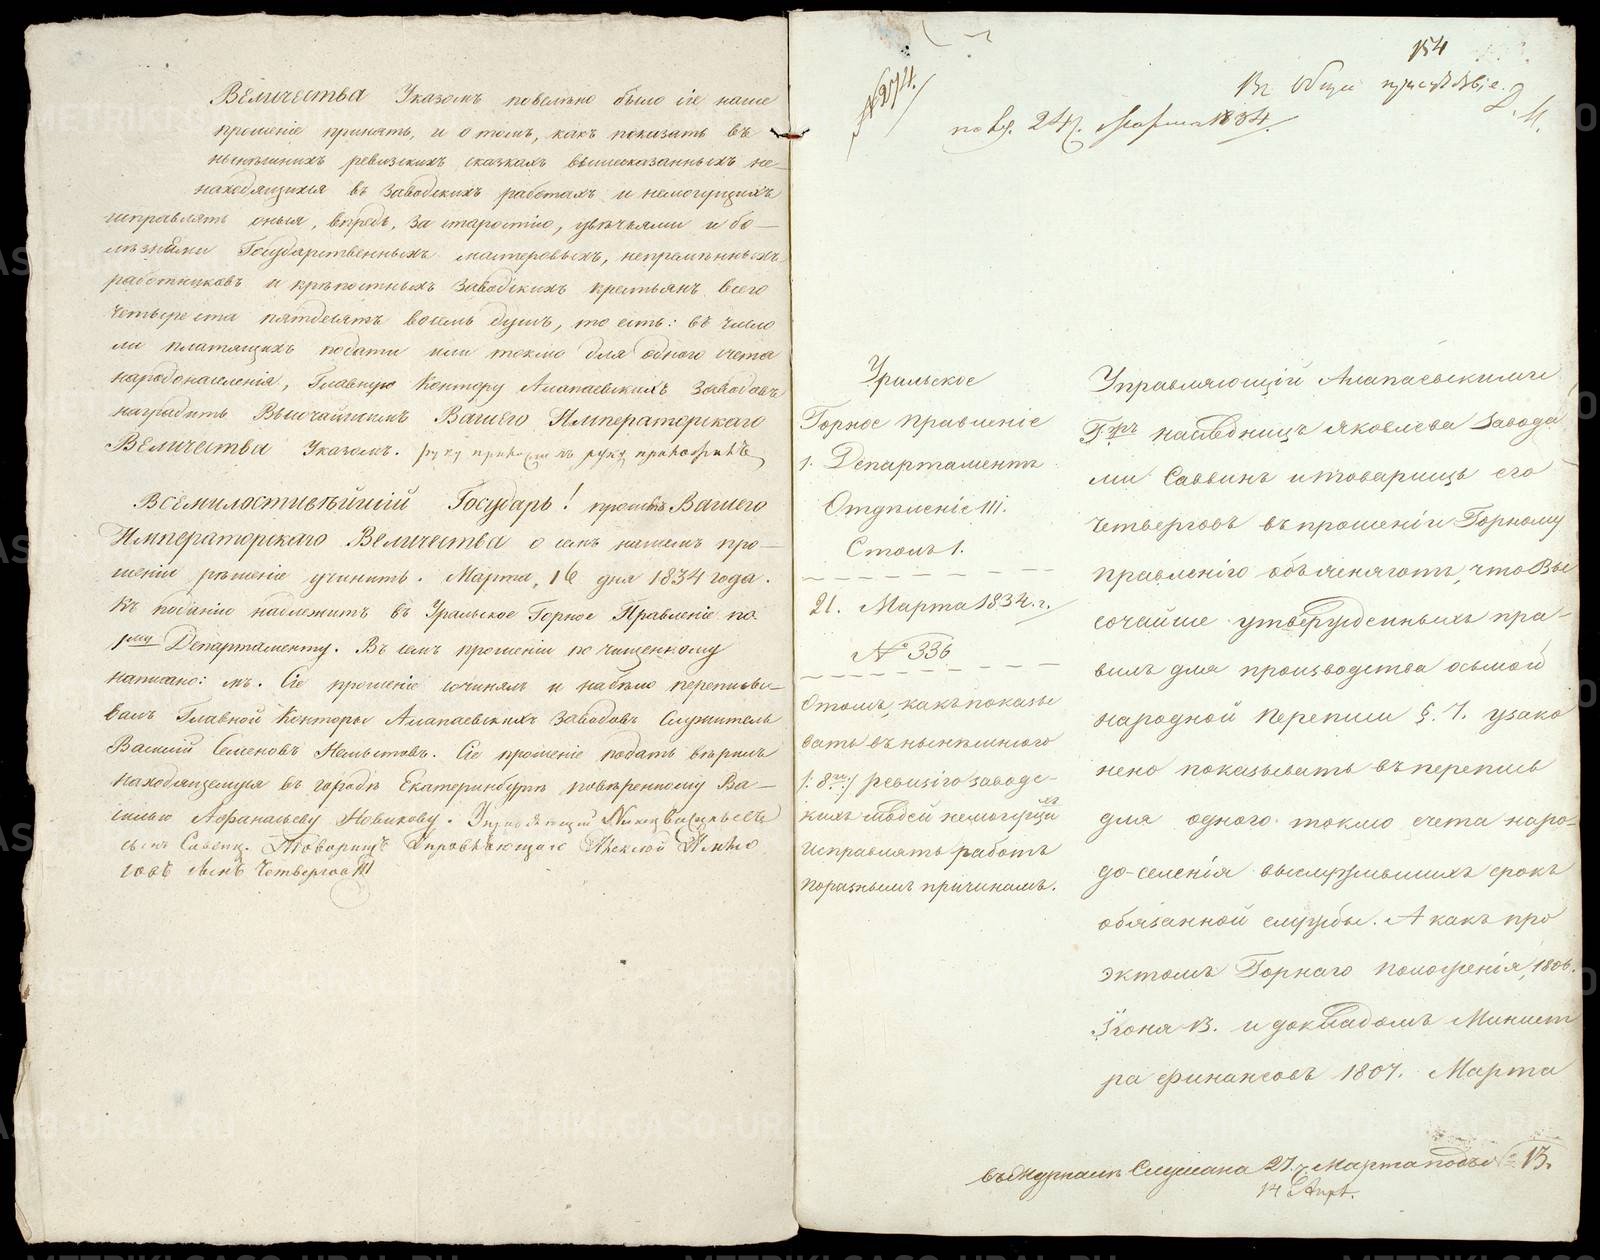 Величества Указомъ повелѣно было сіе наше
прошеніе принять, и о томъ, какъ показать въ
нынѣшнихъ ревизскихъ сказкахъ вышесказанныхъ не-
находящихся въ заводскихъ работахъ и немогущихъ
исправлять оныя, впредь, за старостію, увѣчьями и бо-
лѣзнями Государственныхъ мастеровыхъ, непремѣнныхъ
работниковъ и крѣпостныхъ заводскихъ крестьянъ всего
четыреста пятдесятъ восемь душъ, то есть: въ число
ли платящихъ подати или токмо для одного счета
народонаселенія, Главную Контору Алапаевскихъ заводовъ
наградить Высочайшимъ Вашего Императорскаго
Величества Указомъ.
Всемилостивѣйшій Государь! просимъ Вашего
Императорскаго Величества о семъ нашемъ про-
шеніи рѣшеніе учинить. Марта, 16 дня 1834 года.
Къ поданію надлежитъ въ Уральское Горное Правленіе по
1му Департаменту. Въ семъ прошеніи по чищенному
написано: мъ. Сіе прошеніе сочинялъ и набѣло переписы-
валъ Главной Конторы Алапаевскихъ заводовъ Служитель
Василій Семеновъ. Сіе прошеніе подать вѣримъ
находящемуся въ городѣ Екатеринбургѣ повѣренному Ва-
силью Афанасьеву Новикову. Управляющій
сынъ Саввинъ. Товарищъ Управляющаго Алексѣй
сынъ Четверговъ
154
Въ Общее присутствіе.
№ 274.
пол. 24. Марта 1834.
Уральское
Горное Правленіе
1. Департаментъ
Отдѣленіе III.
Столъ 1.
21. Марта 1834. г.
№ 336
О томъ, какъ показы
вать въ нынѣшнюю
/: 8ю :/ ревизію заводс-
кихъ людей немогущихъ
исправлять работъ
по разнымъ причинамъ.
Управляющій Алапаевскими
Гърь наслѣдницъ Яковлева завода
ми Саввинъ и товарищъ его
Четверговъ въ прошеніи Горному
правленію объясняютъ, что Вы
сочайше утвержденныхъ пра-
вилъ для производства осьмой
народной переписи §. 7. узако
нено показывать въ перепись
для одного токмо счета наро-
до-селенія выслужившихъ срокъ
обязанной службы. А какъ про
эктомъ Горнаго положенія, 1806.
Іюня 13. и докладомъ Минист
ра Финансовъ 1807. Марта
Въ Журналѣ Слушана 27. Марта подъ № 13.
14 Апр.